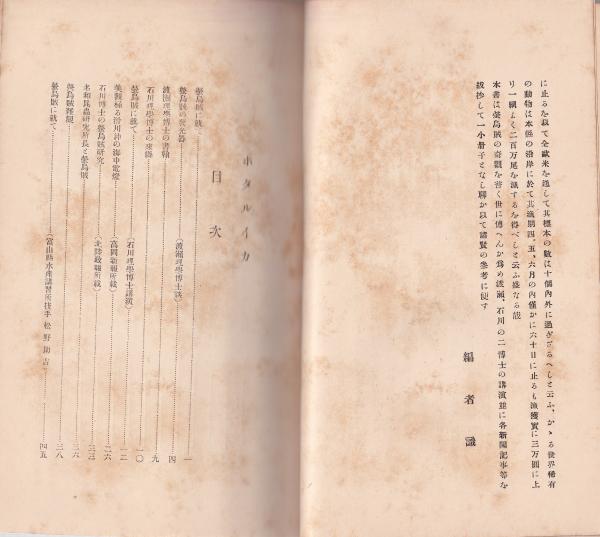 に止るを以て全歐米を通して其標本の數は十個內外に過ぎざるへしと云ふ、かゝる世界稀有
の動物は本縣の沿岸に於て其漁期四、五、六月の內僅かに六十日に止るも漁獲實に三万圓に上
り一網よく二百万尾を漁するを得べしと云ふ盛なる哉
本書は螢烏賊の奇觀を普く世に傳へんか爲め渡瀨、石川の二博士の講演並に各新聞記事等を
拔抄して一小册子となし聊か以て諸賢の參考に便す
編者識
ホタルイカ
目次
螢烏賊に就て 一
螢烏賊の發光器 (渡瀨理學博士談) 四
渡瀨理學博士の書翰
石川理學博士の來縣 九
螢烏賊に就て (石川理學博士講演) 一〇
美觀極る滑川沖の海中電燈 (高岡新報所載) 一二
石川博士の螢烏賊研究 (北陸政報所載) 二六
名和昆蟲研究所長と螢烏賊 三三
螢烏賊雜觀 三六
螢烏賊に就て (富山縣水產講習所技手 松野助吉) 三八
四五